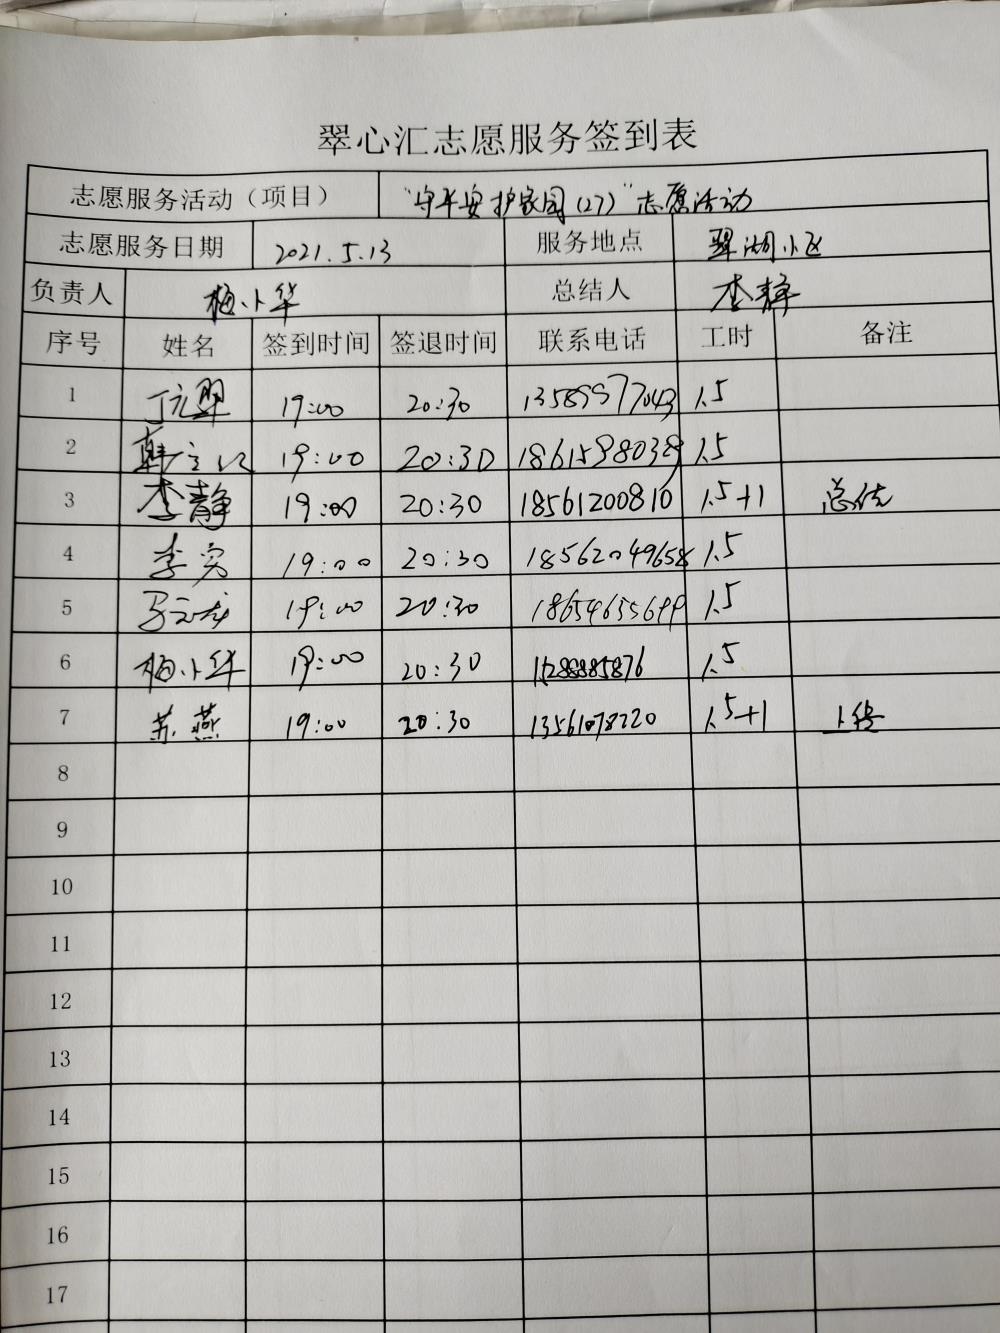 翠心汇志愿服务签到表
志愿服务活动（项目） "守平安护家园（27）"志愿活动
志愿服务日期 2021.5.13 服务地点 翠湖小区
负责人 梅小华 总结人 李静
序号 姓名 签到时间 签退时间 联系电话 工时 备注
1 丁元翠 19:00 20:30 13589977043 1.5
2 韩立 19:00 20:30 1.5
3 李静 19:00 20:30 18561200810 1.5+1 总结
4 李 19:00 20:30 18562049658 1.5
5 19:00 20:30 1.5
6 梅小华 19:00 20:30 15288885876 1.5
7 苏燕 19:00 20:30 13561078220 1.5+1 上传
8
9
10
11
12
13
14
15
16
17